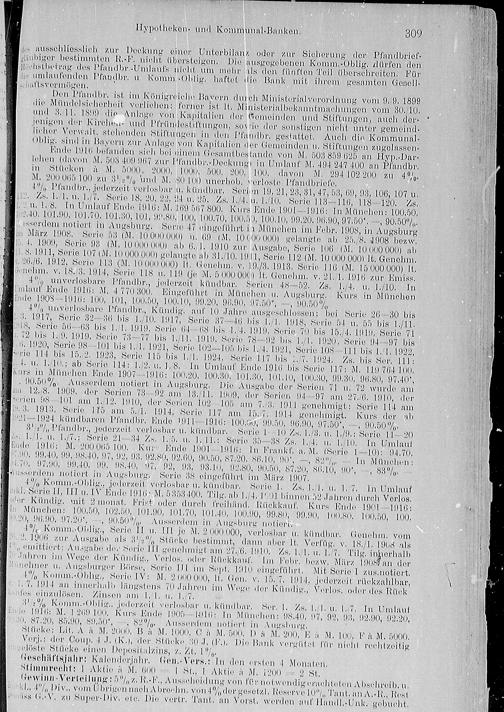 Hypotheken- und Kommunal-Banken. 309
ausschliesslich zur Deckung einer Unterbilanz oder zur Sicherung der Pfandbrief-
gläubiger bestimmten R.-F. nicht übersteigen. Die ausgegebenen Komm.-Oblig. dürfen den
Höchstbetrag des Pfandbr.-Umlaufs nicht um mehr als den fünften Teil überschreiten. Für
die umlaufenden Pfandbr. u. Komm.-Oblig. haftet die Bank mit ihrem gesamten Gesell-
schaftsvermögen.
Den Pfandbr. ist im Königreiche Bayern durch Ministerialverordnung vom 9./9. 1899
die Mündelsicherheit verliehen; ferner ist lt. Ministerialbekanntmachungen vom 30./10.
und 3./11. 1899 die Anlage von Kapitalien der Gemeinden und Stiftungen, auch der-
jenigen der Kirchen- und Pfründestiftungen, sowie der sonstigen nicht unter gemeind-
licher Verwalt. stehenden Stiftungen in den Pfandbr. gestattet. Auch die Kommunal-
Oblig. sind in Bayern zur Anlage von Kapitalien der Gemeinden u. Stiftungen zugelassen.
Ende 1916 befanden sich bei einem Gesamtbestande von M. 503 859 625 an Hyp.-Dar-
lehen (davon M. 503 409 967 zur Pfandbr.-Deckung) in Umlauf M. 494 247 400 an Pfandbr.
in Stücken à M. 5000, 2000, 1000, 500, 200, 100, davon M. 294 102 200 zu 4%,
M. 200 065 100 zu 3½% und M. 80 100 unerheb. verloste Pfandbriefe.
4% Pfandbr., jederzeit verlosbar u. kündbar. Serien 19, 21, 23, 31, 47, 53, 69, 93, 106, 107 u.
Zs. 1./1. u. 1./7. Serie 18, 20, 22, 24 u. 25. Zs. 1./4. u. 1./10. Serie 113—116, 118—120. Zs.
u. 1./8. In Umlauf Ende 1916: M. 169 567 800. Kurs Ende 1901—1916: In München: 100.50,
102.40, 101.90, 101.70, 101.30, 101, 99.80, 100, 100.70, 100.50, 100.10, 99.20, 96.90, 97.50*, —, 90.50%.
Ausserdem notiert in Augsburg. Serie 47 eingeführt in München im Febr. 1908, in Augsburg
März 1908. Serie 53 (M. 10 000 000) u. 69 (M. 10 000 000) gelangte ab 25./8. 1908 bezw.
/4. 1909, Serie 93 (M. 10 000 000) ab 6./1. 1910 zur Ausgabe, Serie 106 (M. 10 000 000) ab
/8. 1911, Serie 107 (M. 10 000 000) gelangte ab 31./10. 1911, Serie 112 (M. 10 000 000) lt. Genehm. v.
26./6. 1912, Serie 113 (M. 10 000 000) lt. Genehm. v. 19./3. 1913. Serie 116 (M. 15 000 000) lt.
Genehm. v. 18./3. 1914, Serie 118 u. 119 (je M. 5 000 000) lt. Genehm. v. 21./1. 1916 zur Emiss.
4% unverlosbare Pfandbr., jederzeit kündbar. Serien 48—52. Zs. 1./4. u. 1./10. In
Umlauf Ende 1916: M. 4 770 300. Eingeführt in München u. Augsburg. Kurs in München
Ende 1908—1916: 100, 101, 100.50, 100.10, 99.20, 96.90, 97.50*, —, 90.50%.
4% unverlosbare Pfandbr., Kündig. auf 10 Jahre ausgeschlossen: bei Serie 26—30 bis
1917, Serie 32—36 bis 1./10. 1917, Serie 37—46 bis 1./1. 1918, Serie 54 u. 55 bis 1./11.
1918, Serie 56—63 bis 1./1. 1919, Serie 64—68 bis 1./4. 1919, Serie 70 bis 15./4. 1919, Serie 71
u. 72 bis 1./9. 1919, Serie 73—77 bis 1./11. 1919, Serie 78—92 bis 1./1. 1920, Serie 94—97 bis
1920, Serie 98—101 bis 1./1. 1921, Serie 102—105 bis 1./4. 1921, Serie 108—111 bis 1./1. 1922,
Serie 114 bis 15./2. 1923, Serie 115 bis 1./1. 1924, Serie 117 bis 1./7. 1924. Zs. bis Ser. 111:
1./4. u. 1./10.; ab Serie 114: 1./2. u. 1./8. In Umlauf Ende 1916 bis Serie 117: M. 119 764 100.
Kurs in München Ende 1907—1916: 100.20, 100.30, 101.30, 101, 100.30, 99.30, 96.80, 97.40*,
—, 90.50%. Ausserdem notiert in Augsburg. Die Ausgabe der Serien 71 u. 72 wurde am
12./8. 1909, der Serien 73—92 am 13./11. 1909, der Serien 94—97 am 27./6. 1910, der
Serien 98—101 am 1./12. 1910, der Serien 102—105 am 7./3. 1911 genehmigt; Serie 114 am
/3. 1913, Serie 115 am 5./1. 1914, Serie 117 am 15./7. 1914 genehmigt. Kurs der ab
1921—1924 kündbaren Pfandbr. Ende 1911—1916: 100.50, 100, 96.90, 97.50*, —, 90.50%.
3½% Pfandbr., jederzeit verlosbar u. kündbar. Serie 1—10 Zs. 1./3. u. 1./9.; Serie 11—20
Zs. 1./1. u. 1./7.; Serie 21—34 Zs. 1./5. u. 1./11.; Serie 35—38 Zs. 1./4. u. 1./10. In Umlauf
Ende 1916: M. 200 065 100. Kurs Ende 1901—1916: In Frankf. a. M. (Serie 1—10): 94.70,
97.90, 99.40, 99, 98.40, 97, 92, 93, 92.80, 92.60, 90.50, 87.20, 86.10, 90*, —, 82%. — In München:
94.70, 97.90, 99.40, 99, 98.40, 97, 92, 93, 93.10, 92.80, 90.50, 87.20, 86.10, 90*, —, 83%.
Ausserdem notiert in Augsburg. Serie 38 eingeführt im März 1907.
4% Komm.-Oblig., jederzeit verlosbar u. kündbar. Ser. I. Zs. 1./1. u. 1./7. In Umlauf
inkl. Serie II, III u. IV Ende 1916: M. 5 353 400. Tilg. ab 1./4. 1901 binnen 52 Jahren durch Verlos.
oder Kündig. mit 2 monat. Frist oder durch freihänd. Rückkauf. Kurs Ende 1901—1916:
In München: 100.50, 102.50, 101.90, 101.70, 101.40, 100.90, 99.80, 99.90, 100.80, 100.50, 100,
99.20, 96.90, 97.20*, —, 90.50%. Ausserdem in Augsburg notiert.
4% Komm.-Oblig., Serie II u. III je M. 2 000 000, verlosbar u. kündbar. Genehm. vom
/2. 1906 zur Ausgabe als 3½% Stücke bestimmt, dann aber lt. Verfüg. v. 18./1. 1908 als
4% emittiert; Ausgabe der Serie III genehmigt am 27./6. 1910. Zs. 1./1. u. 1./7. Tilg. innerhalb
Jahren im Wege der Kündig., Verlos. oder Rückkauf. Im Febr. bezw. März 1908 an der
Münchner u. Augsburger Börse, Serie III im Sept. 1910 eingeführt. Mit Serie I zus. notiert.
4% Komm.-Oblig., Serie IV: M. 2 000 000, lt. Gen. v. 15./7. 1914, jederzeit rückzahlbar,
/7. 1914 an innerhalb längstens 70 Jahren im Wege der Kündig., Verlos. oder des Rück-
kaufes einzulösen. Zinsen am 1./1. u. 1./7.
3½% Komm.-Oblig., jederzeit verlosbar u. kündbar. Ser. I. Zs. 1./1. u. 1./7. In Umlauf
Ende 1916: M. 1 269 100. Kurs Ende 1905—1916: In München: 98.40, 97, 92, 93, 92.90, 92.20,
90.30, 87.20, 85.90, 89.50*, —, 83%. Ausserdem notiert in Augsburg.
Stücke: Lit. A à M. 2000, B à M. 1000, C à M. 500, D à M. 200, E à M. 100, F à M. 5000.
Verj.: der Coup. 4 J. (K.), der Stücke 30 J. (F.). Die Bank vergütet für nicht rechtzeitig
eingelöste Stücke einen Depositalzins, z. Zt. 1%.
Geschäftsjahr: Kalenderjahr. Gen.-Vers.: In den ersten 4 Monaten.
Stimmrecht: 1 Aktie à M. 600 = 1 St., 1 Aktie à M. 1200 = 2 St.
Gewinn-Verteilung: 5% z. R.-F., Ausscheidung von für notwendig erachteten Abschreib.,
4% Div., vom Übrigen nach Abrechn. von 4% der gesetzl. Reserve 10% Tant. an A.-R., Rest
G.-V. zu Super-Div. etc. Die vertr. Tant. an Vorst. werden auf Handl.-Unk. gebucht.